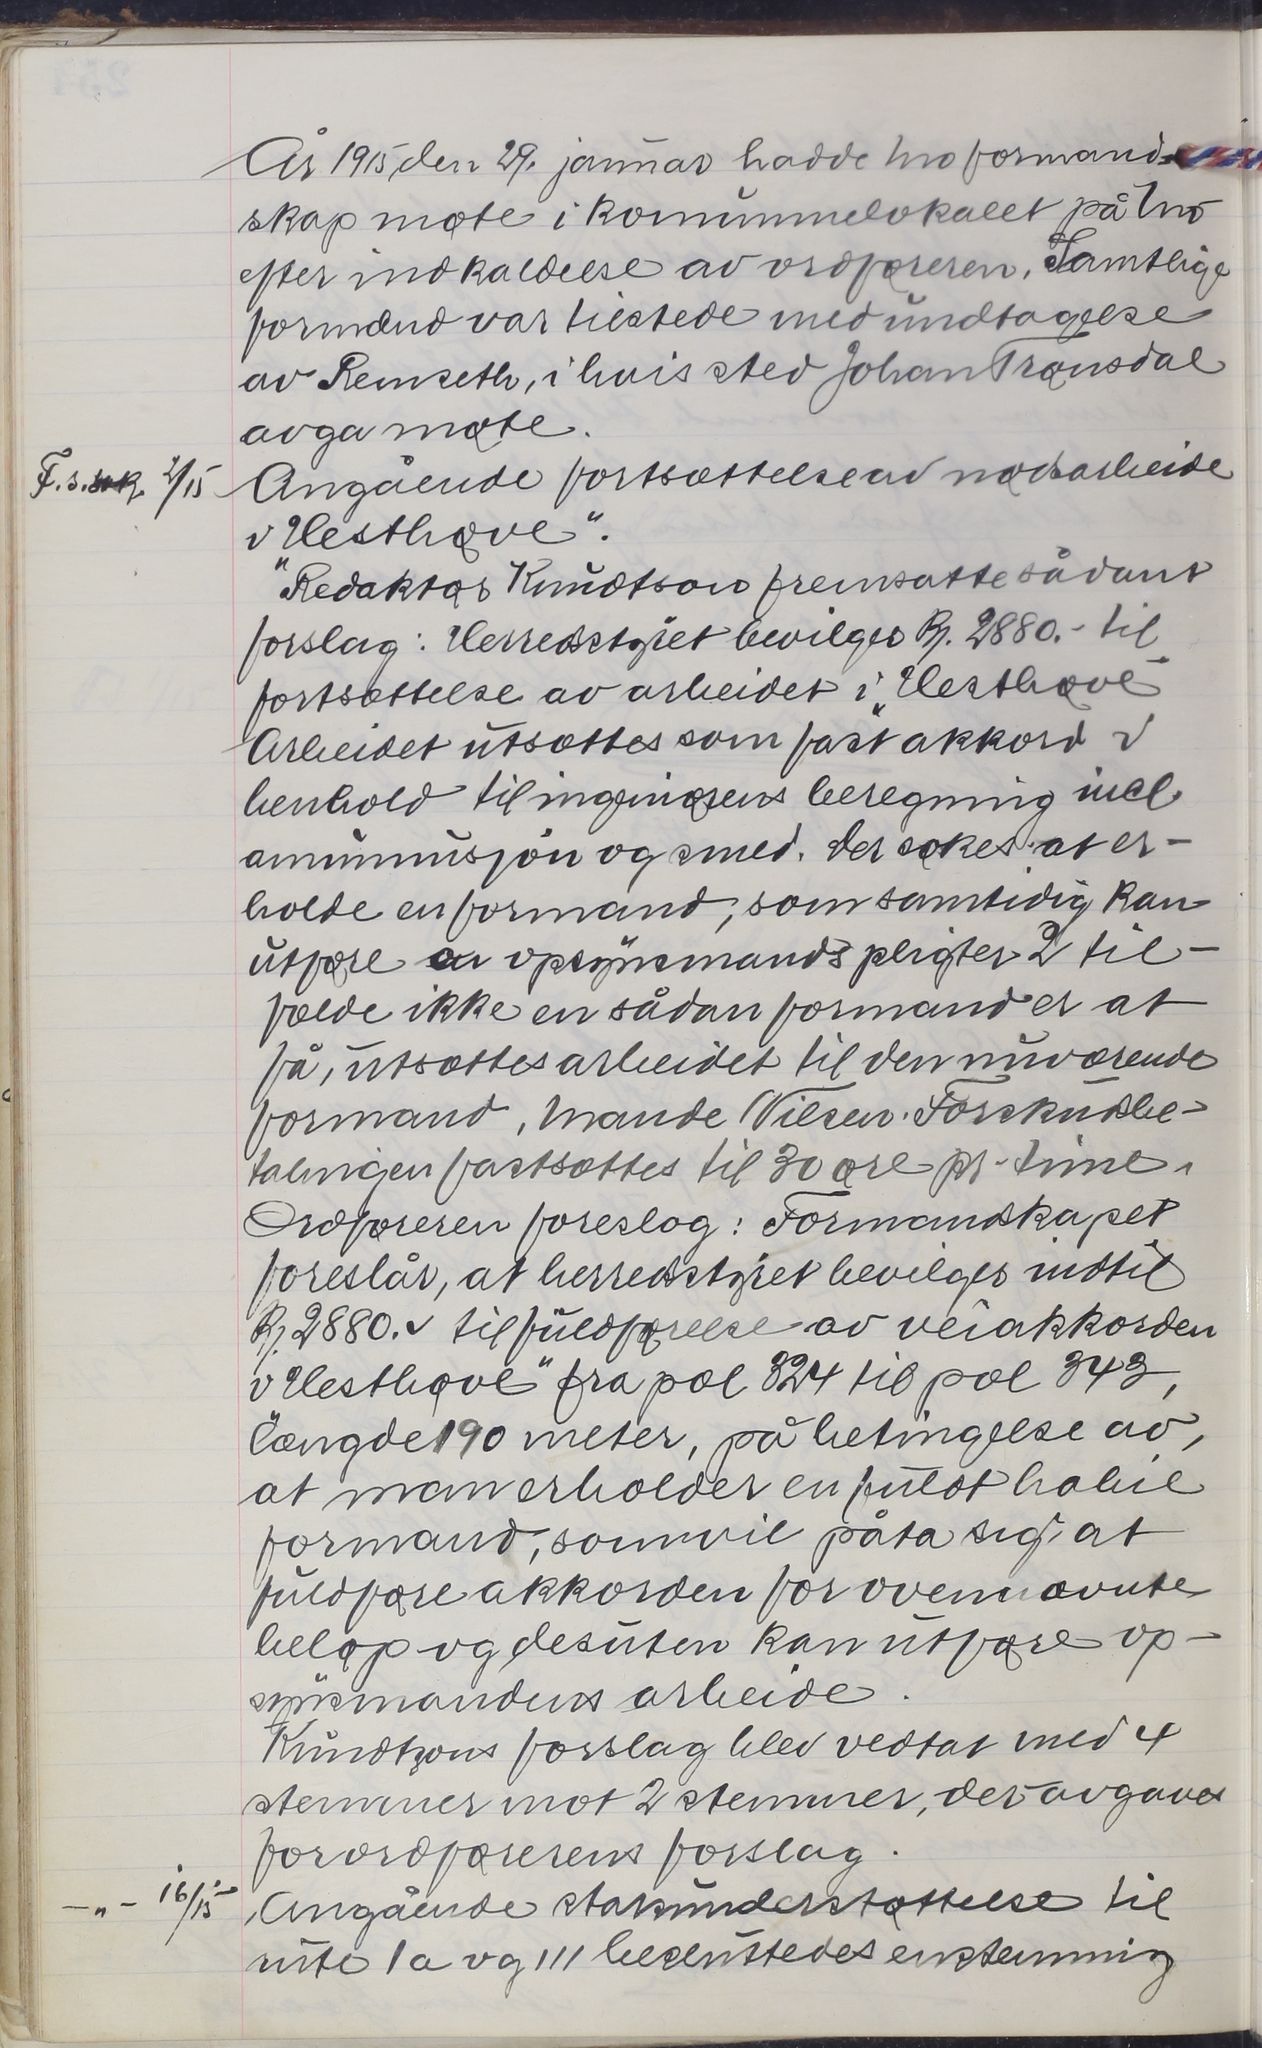 År 1915, den 29. januar hadde Mo formand-
skap møte i kommunelokalet på Mo
efter indkaldelse av ordføreren. Samtlige
formænd var tilstede med undtagelse
av Remseth, i hvis sted Johan Transdal
avga møte.
F.s.sak 2/15 Angående fortsættelse av nødsarbeide
i "Hesthøve".
Redaktør Knudtson fremsatte sådant
forslag: Herredstyret bevilger Kr. 2880.- til
fortsættelse av arbeidet i "Hesthøve"
Arbeidet utsættes som fast akkord i
henhold til ingeniørens beregning incl.
ammunisjon og smed. Der søkes at er-
holde en formand, som samtidig kan
utføre en opsynsmands pligter. I til-
fælde ikke en sådan formand er at
få, utsættes arbeidet til den nuværende
formand, Mande Nilsen. Forskudsbe-
talingen fastsættes til 30 øre pr. time.
Ordføreren foreslog: Formandskapet
foreslår, at herredstyret bevilger indtil
Kr. 2880.- til fuldførelse av veiakkorden
i "Hesthøve" fra pæl 324 til pæl 343,
længde 190 meter, på betingelse av,
at man erholder en fuldt habil
formand, som vil påta sig at
fuldføre akkorden for ovennævnte
beløp og desuten kan utføre op-
synsmandens arbeide.
Knudtzons forslag blev vedtat med 4
stemmer mot 2 stemmer, der avgaves
for ordførerens forslag.
-"- 16/15 Angående statsunderstøttelse til
rute 1a og III besluttedes enstemmig